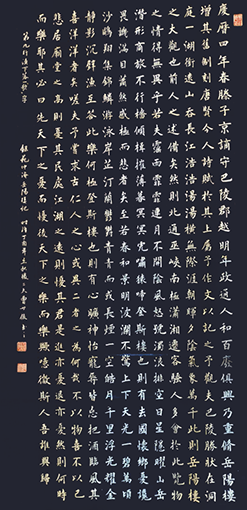 慶曆四年春滕子京謫守巴陵郡越明年政通人和百廢俱興乃重脩岳陽樓
增其舊制刻唐賢今人詩賦於其上屬予作文以記之予觀夫巴陵勝狀在洞
庭一湖銜遠山吞長江浩浩湯湯橫無際涯朝暉夕陰氣象萬千此則岳陽樓
之大觀也前人之述備矣然則北通巫峽南極瀟湘遷客騷人多會於此覽物
之情得無異乎若夫霪雨霏霏連月不開陰風怒號濁浪排空日星隱曜山岳
潛形商旅不行檣傾楫摧薄暮冥冥虎嘯猿啼登斯樓也則有去國懷鄉憂讒
畏譏滿目蕭然感極而悲者矣至若春和景明波瀾不驚上下天光一碧萬頃
沙鷗翔集錦鱗游泳岸芷汀蘭郁郁青青而或長煙一空皓月千里浮光耀金
靜影沉璧漁歌互答此樂何極登斯樓也則有心曠神怡寵辱皆忘把酒臨風其
喜洋洋者矣嗟夫予嘗求古仁人之心或異二者之為何哉不以物喜不以己
悲居廟堂之高則憂其民處江湖之遠則憂其君是進亦憂退亦憂然則何時
而樂耶其必曰先天下之憂而憂後天下之樂而樂歟噫微斯人吾誰與歸
錄范仲淹岳陽樓記